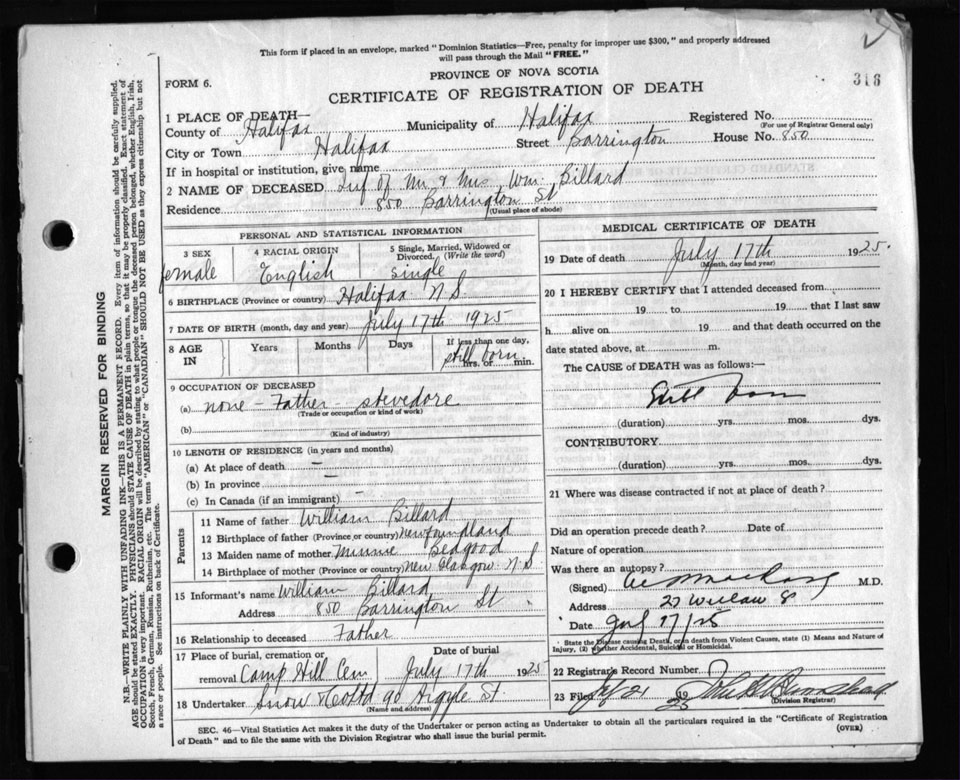 This form if placed in an envelope, marked "Dominion Statistics—Free, penalty for improper use $300," and properly addressed
will pass through the Mail "FREE."
318
FORM 6.
PROVINCE OF NOVA SCOTIA
CERTIFICATE OF REGISTRATION OF DEATH
1 PLACE OF DEATH—
County of Halifax Municipality of Halifax Registered No.
(For use of Registrar General only)
City or Town Halifax Street Barrington House No. 850
If in hospital or institution, give name
2 NAME OF DECEASED Inf of Mr & Mrs Wm. Billard
Residence 850 Barrington St
(Usual place of abode)
PERSONAL AND STATISTICAL INFORMATION
3 SEX 4 RACIAL ORIGIN 5 Single, Married, Widowed or
Divorced. (Write the word)
female English single
6 BIRTHPLACE (Province or country) Halifax N.S.
7 DATE OF BIRTH (month, day and year) July 17th 1925
8 AGE IN Years Months Days If less than one day,
still born
hrs. or min.
9 OCCUPATION OF DECEASED
(a) none - Father - stevedore
(Trade or occupation or kind of work)
(b)
(Kind of industry)
10 LENGTH OF RESIDENCE (in years and months)
(a) At place of death —
(b) In province —
(c) In Canada (if an immigrant) —
Parents
11 Name of father William Billard
12 Birthplace of father (Province or country) Newfoundland
13 Maiden name of mother Minnie Bedgood
14 Birthplace of mother (Province or country) New Glasgow N.S
15 Informant's name William Billard
Address 850 Barrington St
16 Relationship to deceased Father
17 Place of burial, cremation or Date of burial
removal Camp Hill Cem July 17th 1925
18 Undertaker Snow & Co Ltd 90 Argyle St
(Name and address)
MEDICAL CERTIFICATE OF DEATH
19 Date of death July 17th 1925.
(Month, day and year)
20 I HEREBY CERTIFY that I attended deceased from
19 to 19 that I last saw
h alive on 19 and that death occurred on the
date stated above, at m.
The CAUSE of DEATH was as follows:—
Still born
(duration) yrs. mos. dys.
CONTRIBUTORY
(duration) yrs. mos. dys.
21 Where was disease contracted if not at place of death?
Did an operation precede death? Date of
Nature of operation
Was there an autopsy?
(Signed) M.D.
Address 27
Date July 17/25
State the Disease causing Death, or in death from Violent Causes, state (1) Means and Nature of
Injury, (2) whether Accidental, Suicidal or Homicidal.
22 Registrar's Record Number
23 Filed July 21 1925
(Division Registrar)
SEC. 46—Vital Statistics Act makes it the duty of the Undertaker or person acting as Undertaker to obtain all the particulars required in the "Certificate of Registration
of Death" and to file the same with the Division Registrar who shall issue the burial permit.
(OVER)
MARGIN RESERVED FOR BINDING
N.B.—WRITE PLAINLY WITH UNFADING INK—THIS IS A PERMANENT RECORD. Every item of information should be carefully supplied.
AGE should be stated EXACTLY. PHYSICIANS should STATE CAUSE OF DEATH in plain terms, so that it may be properly classified. Exact statement of
OCCUPATION is very important. RACIAL ORIGIN will be described by stating to what people or tongue the deceased person belonged, whether English, Irish,
Scotch, French, German, Russian, Ruthenian, etc. The terms "AMERICAN" or "CANADIAN" SHOULD NOT BE USED as they express citizenship but not
a race or people. See instructions on back of Certificate.